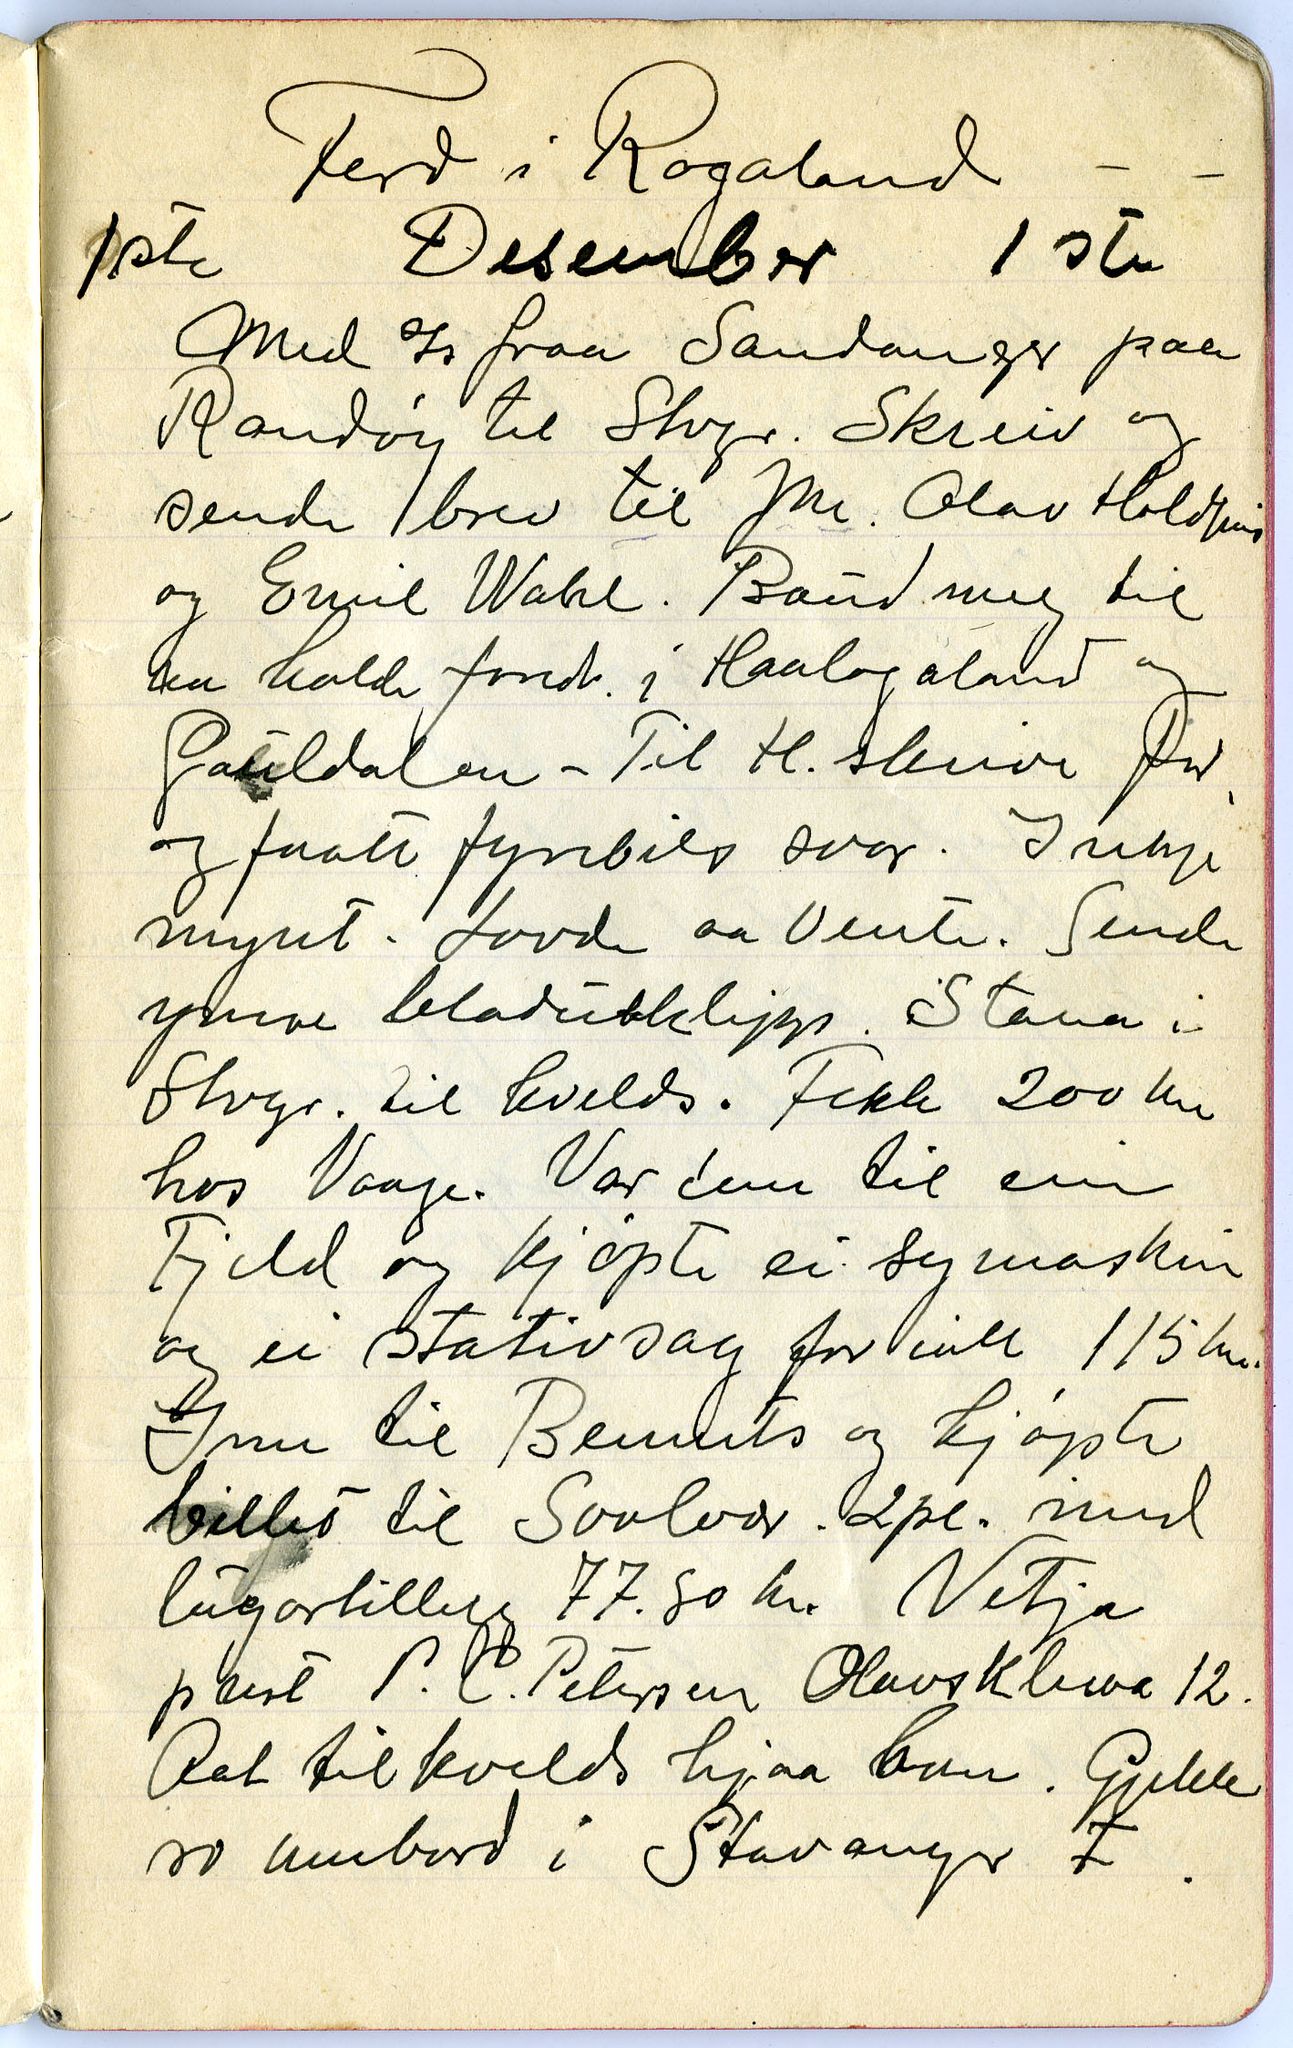 Ferd i Rogaland - -
1ste Desember 1ste
Med s/s fraa Sandanger paa
Randöy til Stvgr. Skreiv og
sende brev til Olav
og Emil Wahl. Baud meg til
aa halde foredr. i Haalogaland og
Gauldalen - Til H. skrive fyr,
og faatt fyrebils svar. Inkje
nynt. Lovde aa vente. Sende
ymse bladutklypp. Stana i
Stvgr. til kvelds. Fekk 200 kr
hos Vaage. Var inn til ein
Fjeld og kjöpte ei symaskin
og ei stativsag for ialt 115 kr.
Inn til Bennets og kjöpte
billet til Svolvær. 2pl. med
lugartillegg 77.80 kr. Vitja
prest P. C. Petersen Olavskleiva 12.
Aat til kvelds hjaa han. Gjekk
so umbord i Stavanger I.